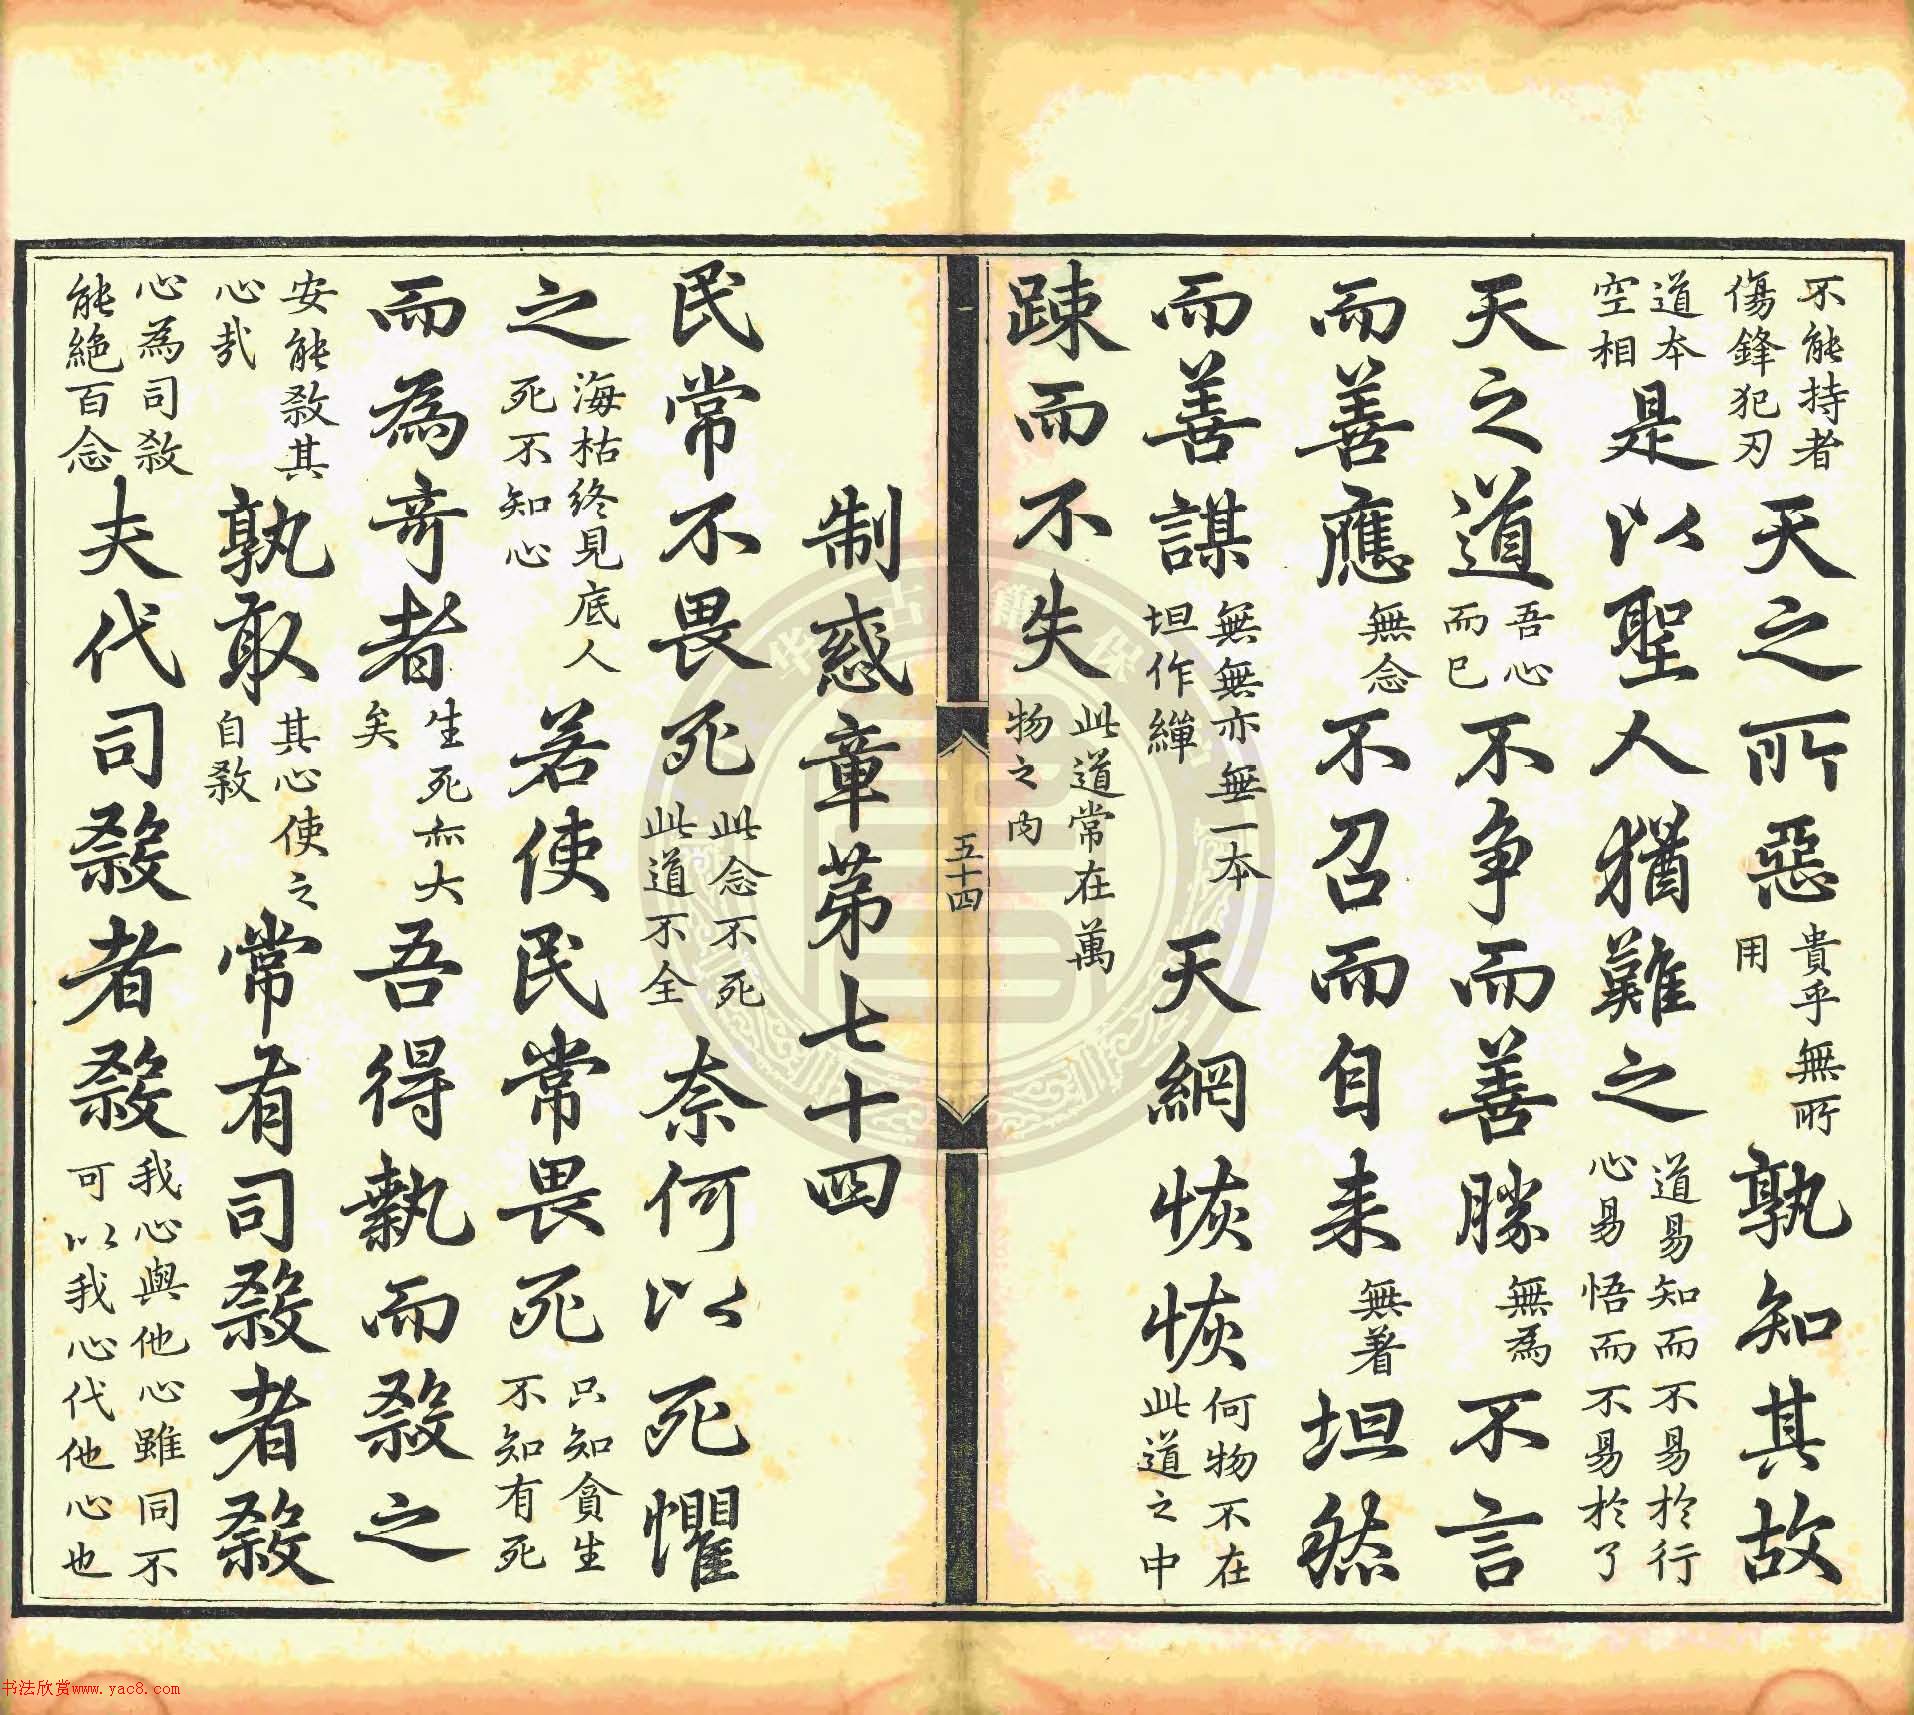 不能持者傷鋒犯刃天之所惡貴乎無所用孰知其故
道本空相是以聖人猶難之道易知而不易於行心易悟而不易於了
天之道吾心而已不争而善勝無為不言
而善應無念不召而自来無著坦然
而善謀無無亦無一本坦作繟天網恢恢何物不在此道之中
踈而不失此道常在萬物之内
五十四
制惑章苐七十四
民常不畏死此念不死此道不全奈何以死懼
之海枯終見底人死不知心若使民常畏死只知貪生不知有死
而為竒者生死亦大矣吾得執而殺之
安能殺其心哉孰敢其心使之自殺常有司殺者殺
心為司殺能絶百念夫代司殺者殺我心與他心雖同不可以我心代他心也
书法欣赏www.yac8.com